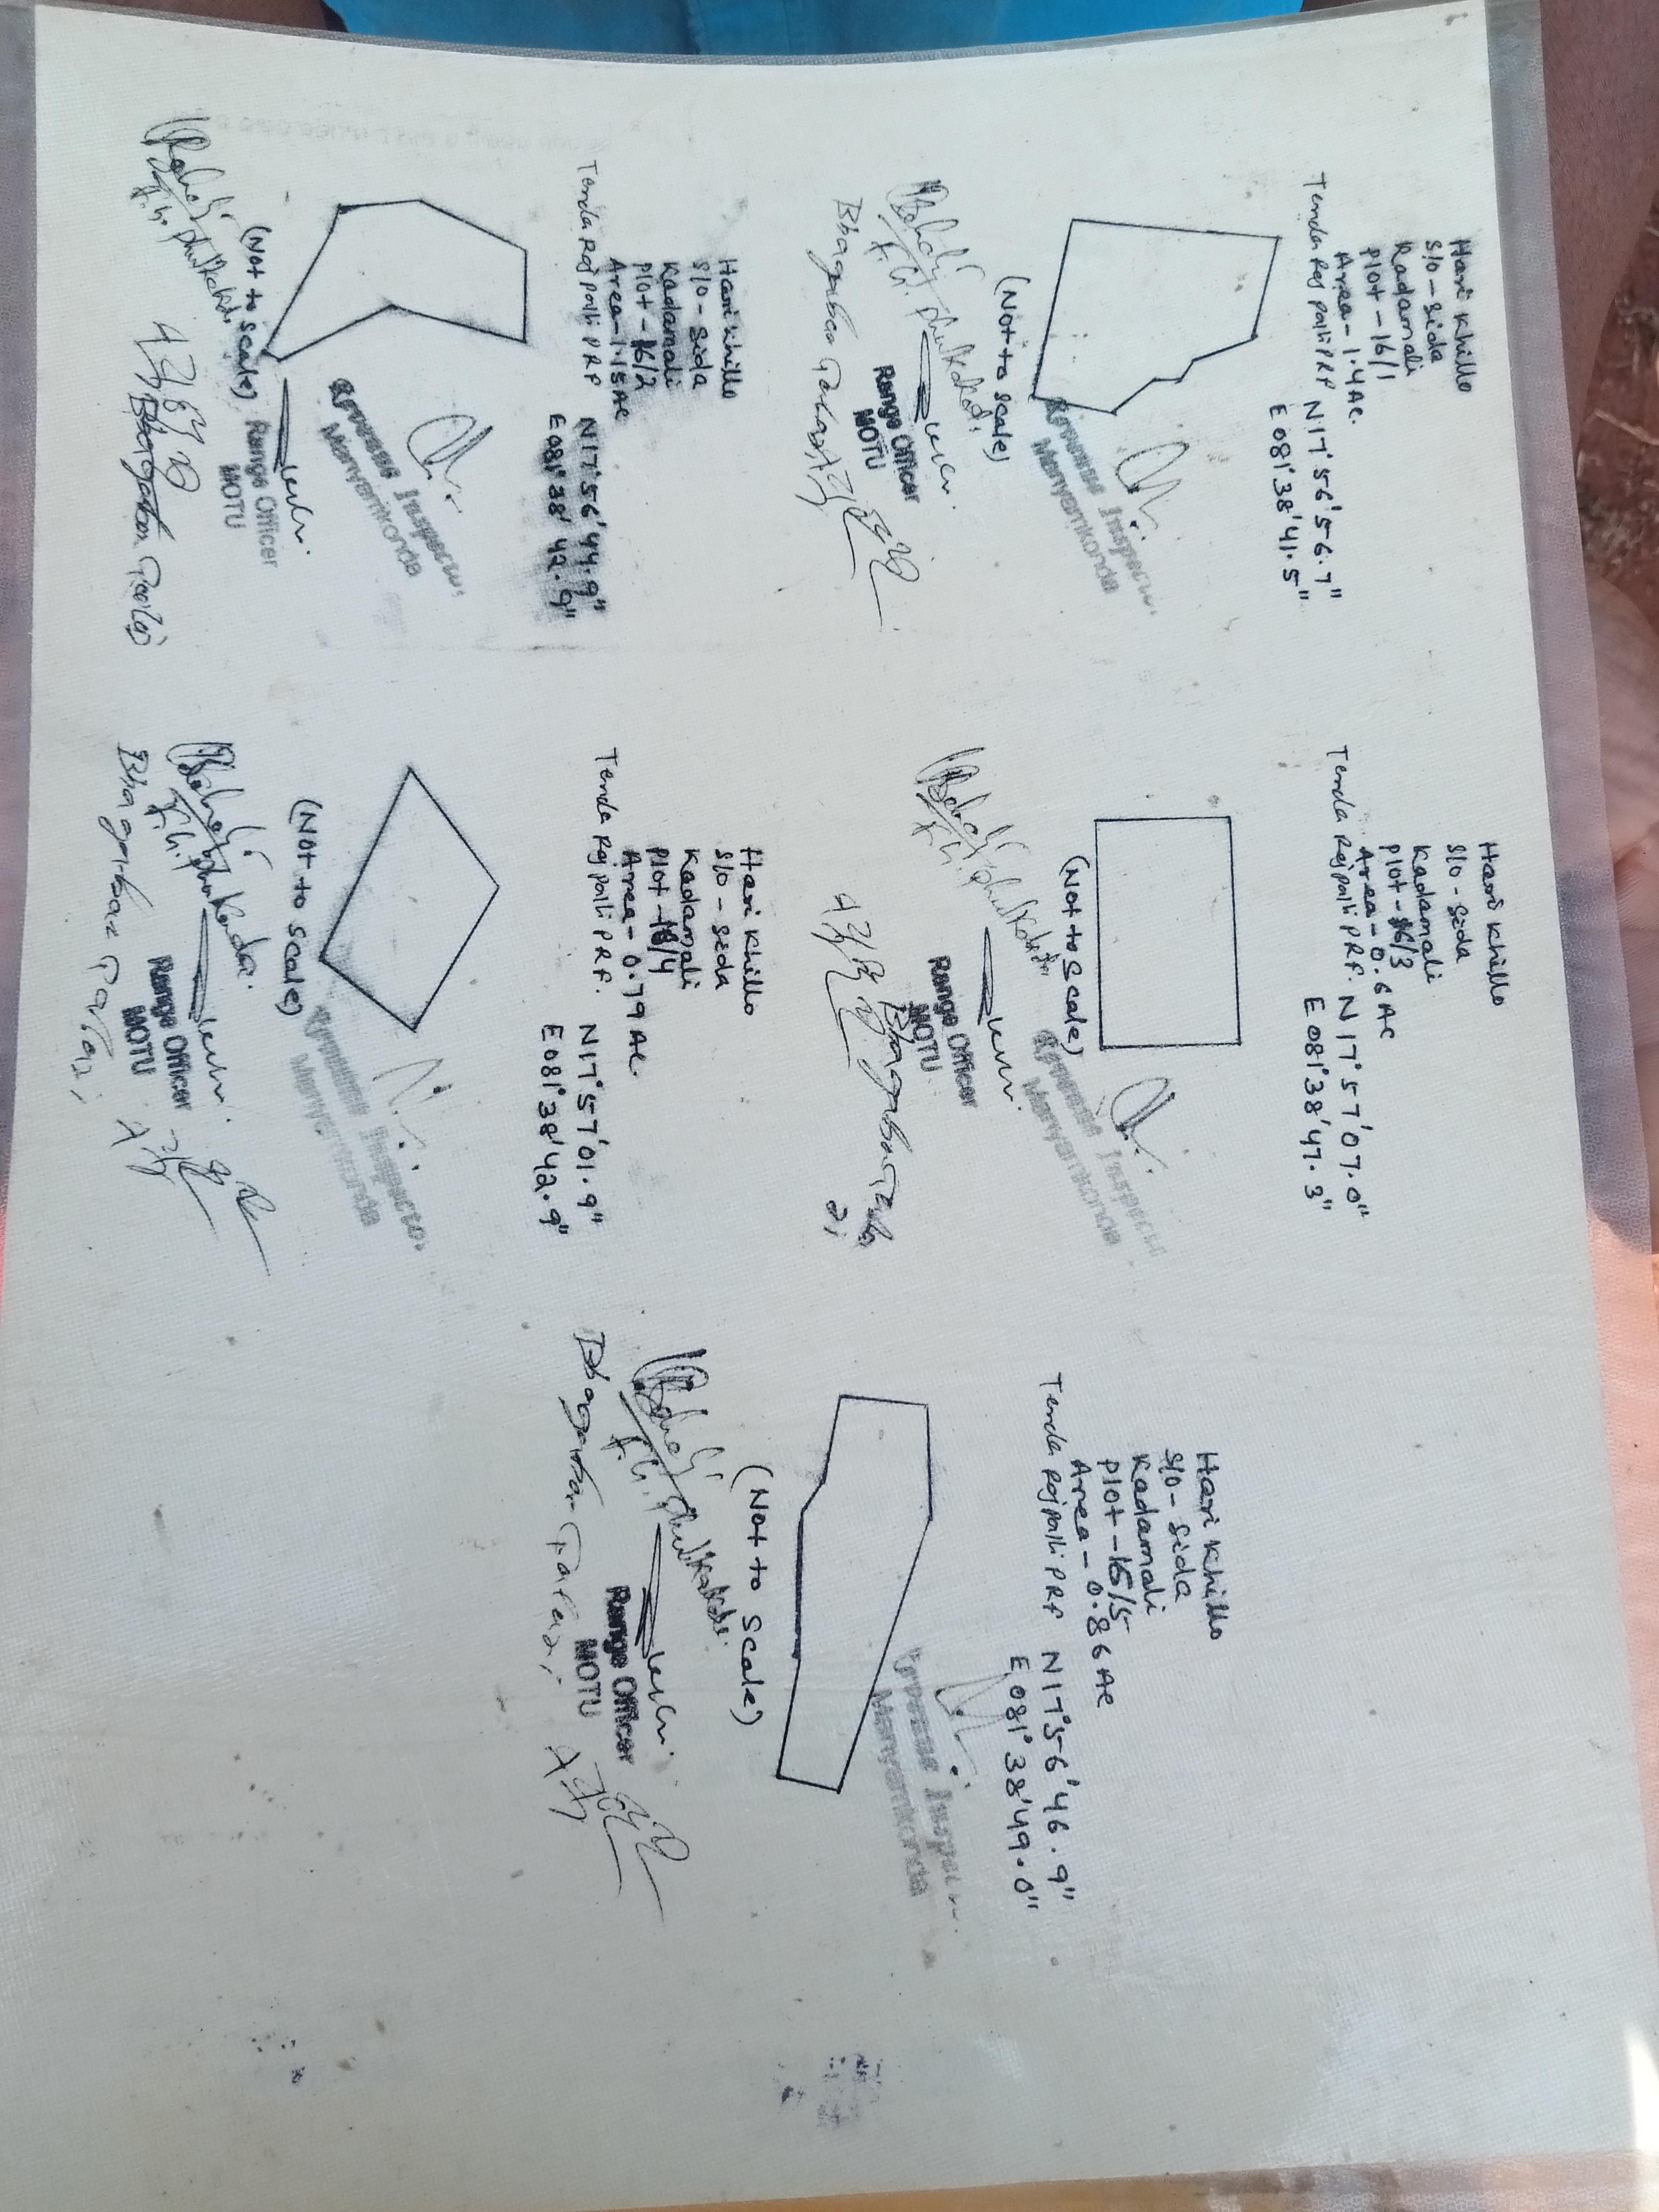 Hari Khillo
S/o - Sida
Kadamali
Plot - 16/1
Area - 1.4 Ac.
Tenda Raj palli PRF N17°56'56.7"
E081°38'41.5"
(Not to scale)
Revenue Inspector
Manyamkonda
Range Officer
MOTU
Hari Khillo
S/o - Sida
Kadamali
Plot - 16/3
Area - 0.6 AC
Tenda Raj palli PRF. N17°57'07.0"
E081°38'47.3"
(Not to Scale)
Revenue Inspector
Manyamkonda
Range Officer
MOTU
Hari Khillo
S/o - Sida
Kadamali
Plot - 16/5
Area - 0.86 Ac
Tenda Raj palli PRF N17°56'46.9"
E081°38'49.0"
(Not to Scale)
Revenue Inspector
Manyamkonda
Range Officer
MOTU
Hari Khillo
S/o - Sida
Kadamali
Plot - 16/2
Area - 1.15 Ac
Tenda Raj palli PRF N17°56'44.9"
E081°38'42.9"
(Not to scale)
Revenue Inspector
Manyamkonda
Range Officer
MOTU
Hari Khillo
S/o - Sida
Kadamali
Plot - 16/4
Area - 0.79 Ac.
Tenda Raj palli PRF. N17°57'01.9"
E081°38'42.9"
(Not to scale)
Revenue Inspector
Manyamkonda
Range Officer
MOTU